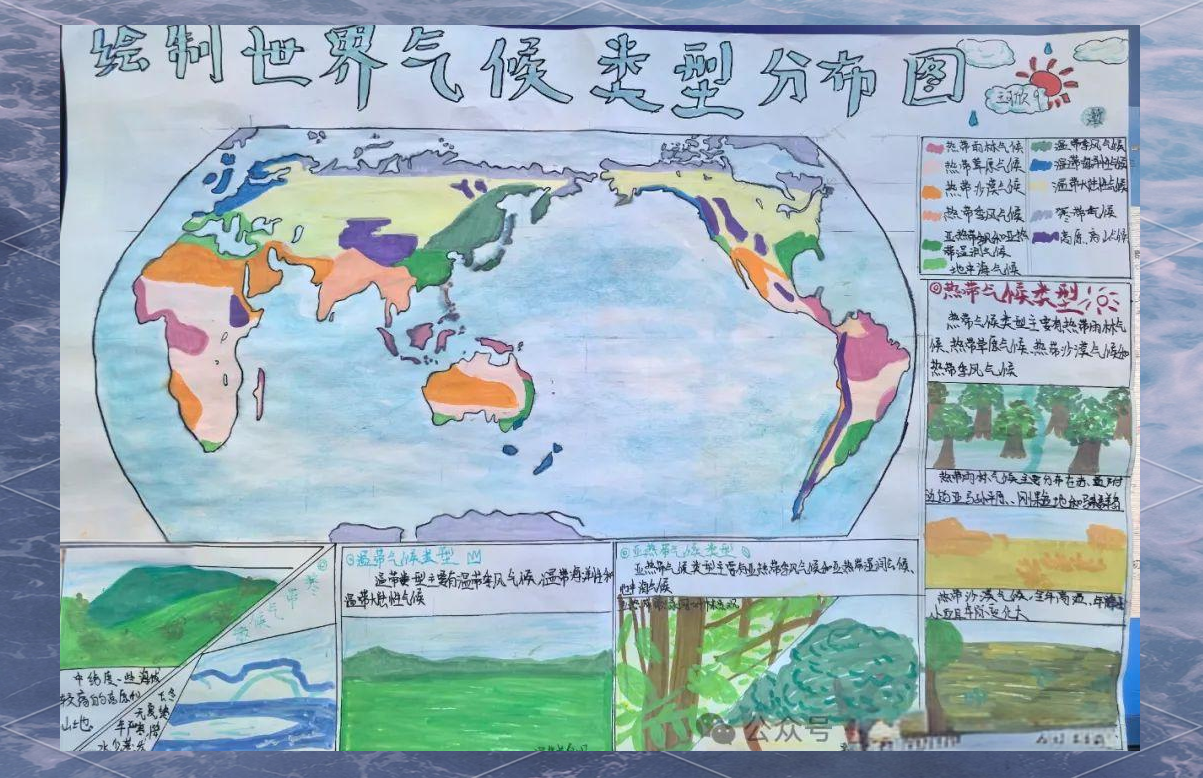 绘制世界气候类型分布图
热带雨林气候
热带草原气候
热带沙漠气候
热带季风气候
亚热带季风和亚热
带湿润气候
地中海气候
温带季风气候
温带海洋性气候
温带大陆性气候
寒带气候
高原、高山气候
热带气候类型
热带气候类型主要有热带雨林气
候、热带草原气候、热带沙漠气候和
热带季风气候
热带雨林气候主要分布在赤道附
近的亚马孙平原、刚果盆地和
热带沙漠气候,全年高温,年降水
小且年际变化大
寒带气候
温带气候类型
温带类型主要有温带季风气候、温带海洋性和
温带大陆性气候
亚热带气候类型
亚热带气候类型主要有亚热带季风气候和亚热带湿润气候、
地中海气候
中纬度
较高的高原和
山地
公众号